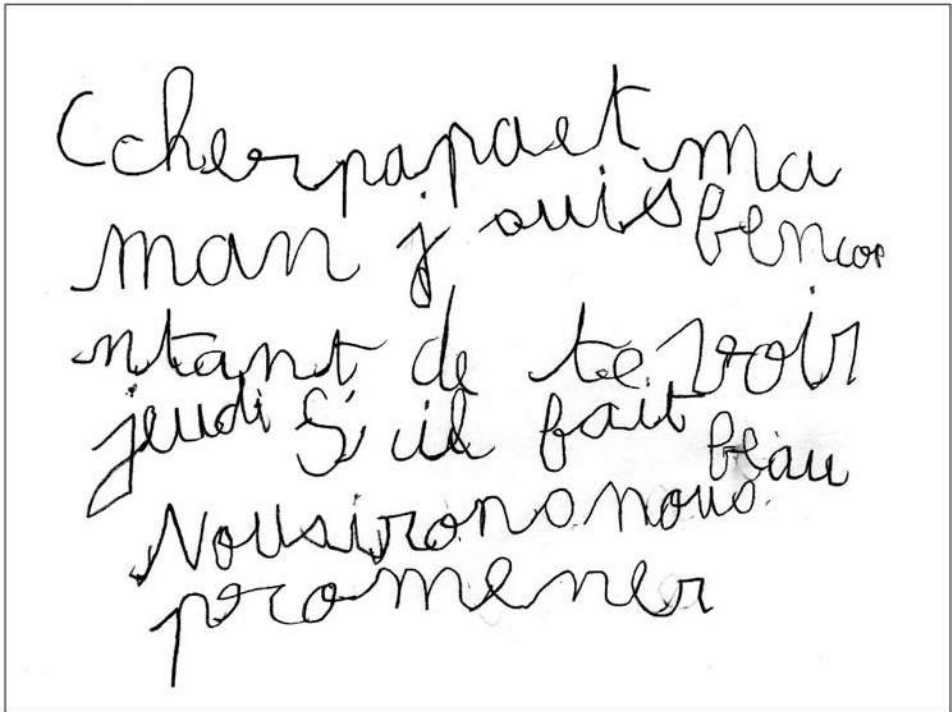 Ccher papa et ma
man j suis ben con
ntant de te voir
jeudi S'iil fait beau
Nous irons nous
promener